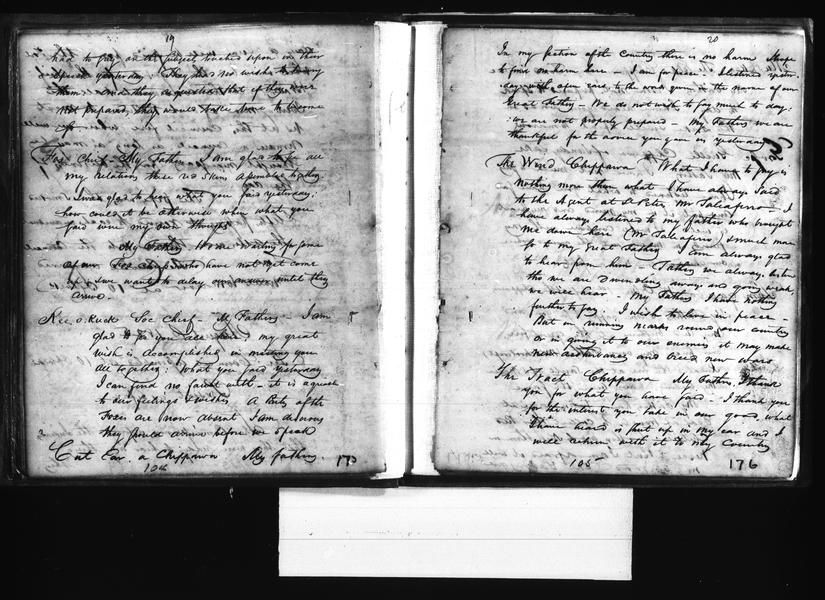 19
had to say on the subjects touched upon in their
speech yesterday. They had no wish to
them and they requested that if they were
not prepared, they would take time to become
so
Fox Chief - My Fathers I am glad to see all
my relations these red skins assembled to day.
I was glad to hear what you said yesterday;
how could it be otherwise when what you
said were my own thoughts
My Fathers We are waiting for some
of our Fox chiefs who have not yet come
& we want to delay our answer until they
arrive.
Kee-o-Kuck Soc Chief - My Fathers - I am
glad to see you all here; my great
wish is accomplished in meeting you
all together. What you said yesterday
I can find no fault with - it is agreeable
to our feelings & wishes A Party of the
Foxes are now absent I am desirous
they should arrive before we speak
Cut Ear. a Chippawa My fathers.
104
175
20
In my section of the Country there is no harm I hope
to find no harm here - I am for peace. I listened yester-
day with open ears to the word given in the name of our
Great Father - We do not wish to say much to day:
we are not properly prepared - My Fathers we are
thankful for the advice you gave us yesterday
The Wind Chippawa What I have to say is
nothing more than what I have always said
to the Agent at St Peters, Mr Taliaferro - I
have always listened to my father who brought
me down here (Mr Taliaferro) & much more
so to my Great Father I am always glad
to hear from him - Father we always listen
tho we are dwindling away and going weak,
we will hear. My Fathers I have nothing
further to say. I wish to live in peace
But in running marks round our country
or in giving it to our enemies it may make
new disturbances and breed new wars
The Track Chippawa My Fathers, I thank
you for what you have said. I thank you
for the interest you take in our good, what
I have heard is shut up in my ear and I
will return with it to my Country
105
176